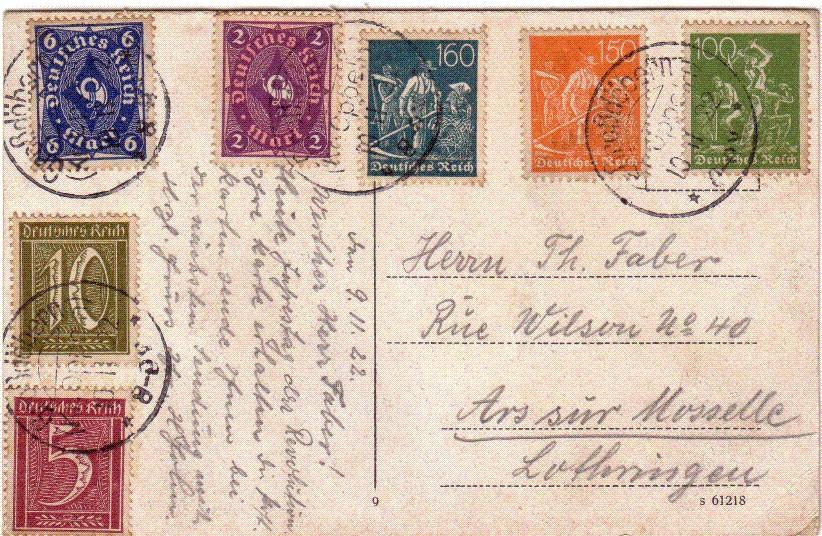 6 6
Deutsches Reich
Mark
6 6
2 2
Deutsches Reich
Mark
2 2
160
Deutsches Reich
150
Deutsches Reich
100
Deutsches Reich
Deutsches Reich
10
Deutsches Reich
5
den 9. 11. 22.
Werther Herr Faber!
Heute Jahrestag der Revolution
Karte erhalten
Karten sende Ihnen bei
der nächsten Sendung mit.
Herrn Th. Faber
Rue Wilson No 40
Ars sur Moselle
Lothringen
9
s 61218